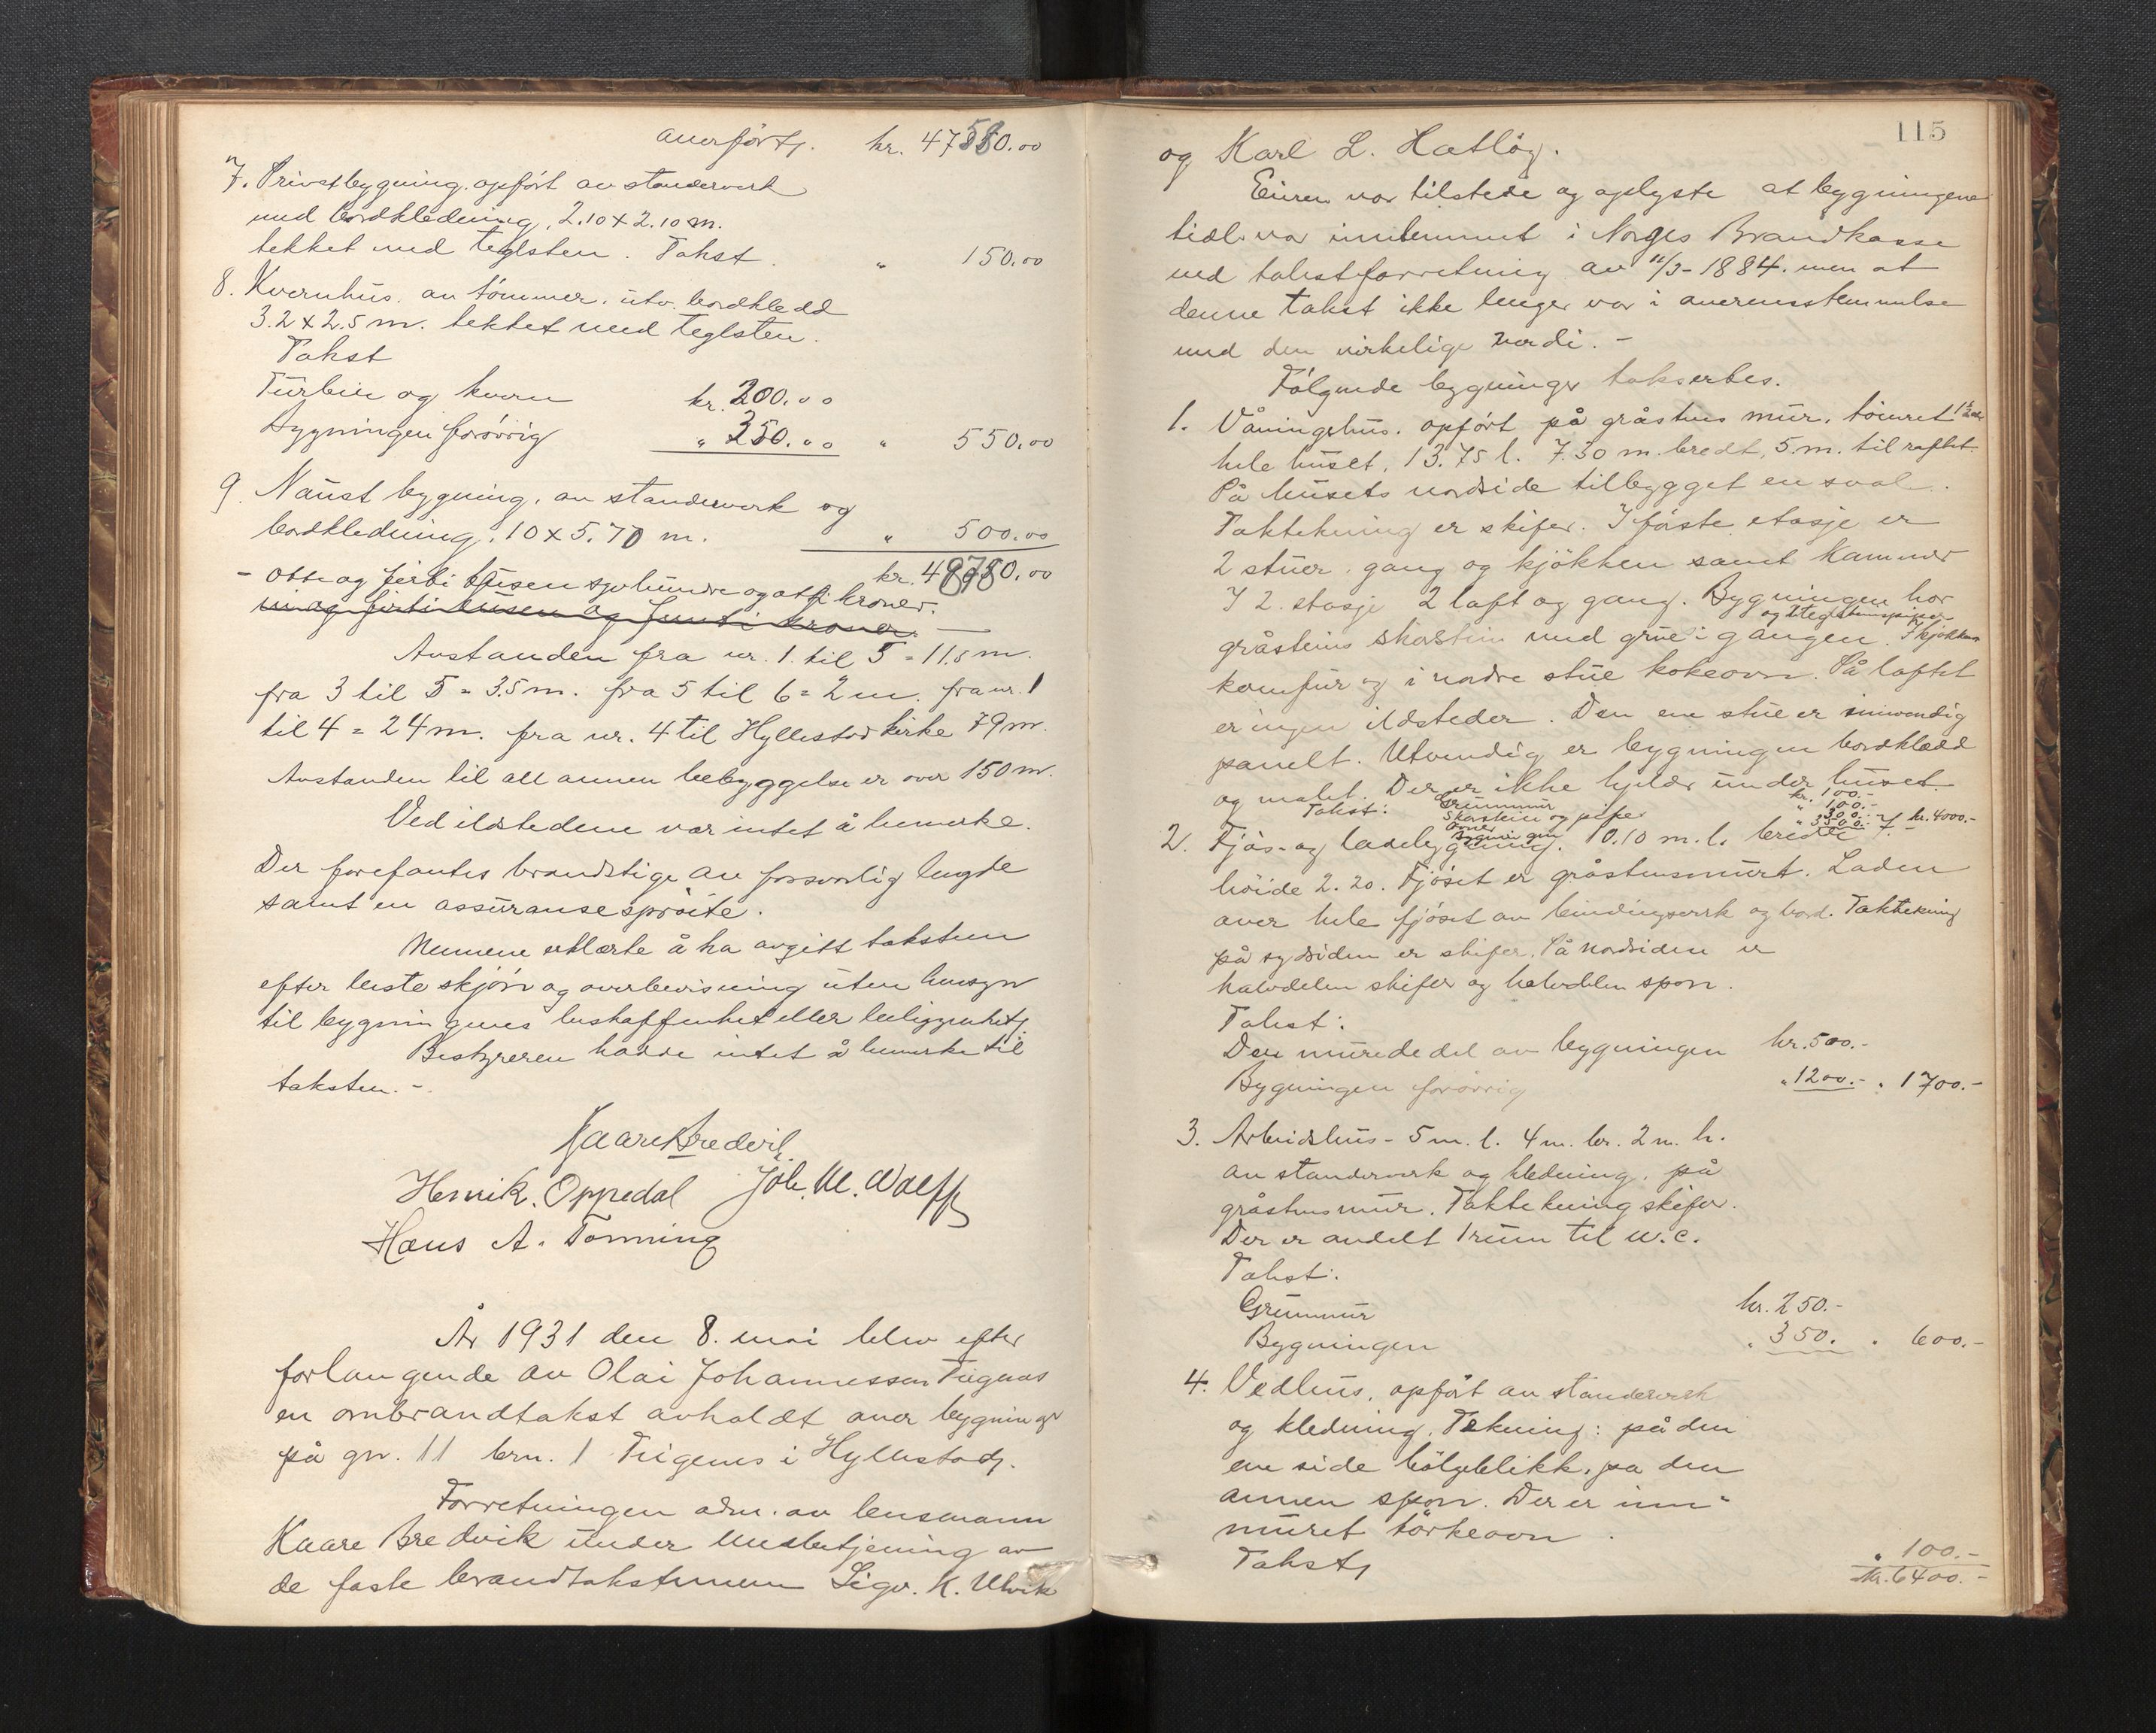 overført. kr. 47580.00
7. Privetbygning. opført av standerverk
med bordkledning, 2.10 x 2.10 m.
tekket med teglsten. Takst. " 150.00
8. Kvernhus. av tømmer. utv. bordkledd
3.2 x 2.5 m. tekket med teglsten.
Takst
Turbin og kvern kr. 200.00
Bygningen forøvrig " 350.00 " 550.00
9. Naust bygning. av standerverk og
bordkledning. 10 x 5.70 m. " 500.00
kr. 48780.00
- otte og førti tusen syvhundre og otti kroner.
ni og førti tusen og femti kroner. —
Avstanden fra nr. 1. til 5 = 11.5 m.
fra 3 til 5 = 3.5 m. fra 5 til 6 = 2 m. fra nr. 1
til 4 = 24 m. fra nr. 4 til Hyllestad kirke 79 m.
Avstanden til all annen bebyggelse er over 150 m.
Ved ildstedene var intet å bemerke.
Der forefantes brandstige av forsvarlig lengde
samt en assuransesprøite.
Mennene erklærte å ha avgitt taksten
efter beste skjøn og overbevisning uten hensyn
til bygningenes beskaffenhet eller beliggenhet.
Bestyreren hadde intet å bemerke til
taksten. -
Kaare Bredvik
Henrik. Oppedal Joh. M. Wolff
Hans A. Tørning
År 1931 den 8. mai blev efter
forlangende av Olai Johannessen Tugenes
en ombrandtakst avholdt over bygninger
på gn. 11 brn. 1 Tugenes i Hyllestad.
Forretningen adm. av lensmann
Kaare Bredvik under medbetjening av
de faste brandtakstmenn Sigv. K. Ulvik
115
og Karl L. Hatløy.
Eieren var tilstede og oplyste at bygningene
tidl. var innlemmet i Norges Brandkasse
ved takstforretning av 11/3-1884. men at
denne takst ikke lenger var i overensstemmelse
med den virkelige verdi. -
Følgende bygninger taksertes.
1. Våningshus. opført på gråstens mur. tømret 1½ etg
hele huset. 13.75 l. 7.30 m. bredt, 5 m. til raftet.
På husets nordside tilbygget en sval.
Taktekning er skifer. I første etasje er
2 stuer. gang og kjøkken samt kammer
I 2. etasje 2 loft og gang. Bygningen har
og 1 teglstenspipe
gråstens skorstein med grue i gangen. I kjøkken
komfur og i nordre stue kokeovn. På loftet
er ingen ildsteder. Den ene stue er innvendig
panelt. Utvendig er bygningen bordklædd
og malet. Der er ikke kjelder under huset.
Takst: Grunnmur kr. 100.-
Skorstein og pipe " 100.-
Ovner " 300.-
Bygningen " 3500.- kr. 4000.-
2. Fjøs- og ladebygning. 10.10 m. l. bredde 7. -
høide 2.20. Fjøset er gråstensmurt. Laden
over hele fjøset av bindingsverk og bord. Taktekning
på sydsiden er skifer. På nordsiden er
halvdelen skifer og halvdelen spon.
Takst:
Den murede del av bygningen kr. 500.-
Bygningen forøvrig " 1200.- " 1700.-
3. Arbeidshus - 5 m. l. 4 m. br. 2 m. h.
av standerverk og kledning. på
gråstensmur. Taktekning skifer.
Der er avdelt 1 rum til W.C.
Takst:
Grunnmur kr. 250.-
Bygningen " 350. " 600.-
4. Vedhus, opført av standerverk
og kledning. Tekning: på den
ene side bølgeblikk, pa den
annen spon. Der er inn-
muret tørkeovn.
Takst " 100.-
kr. 6400.-